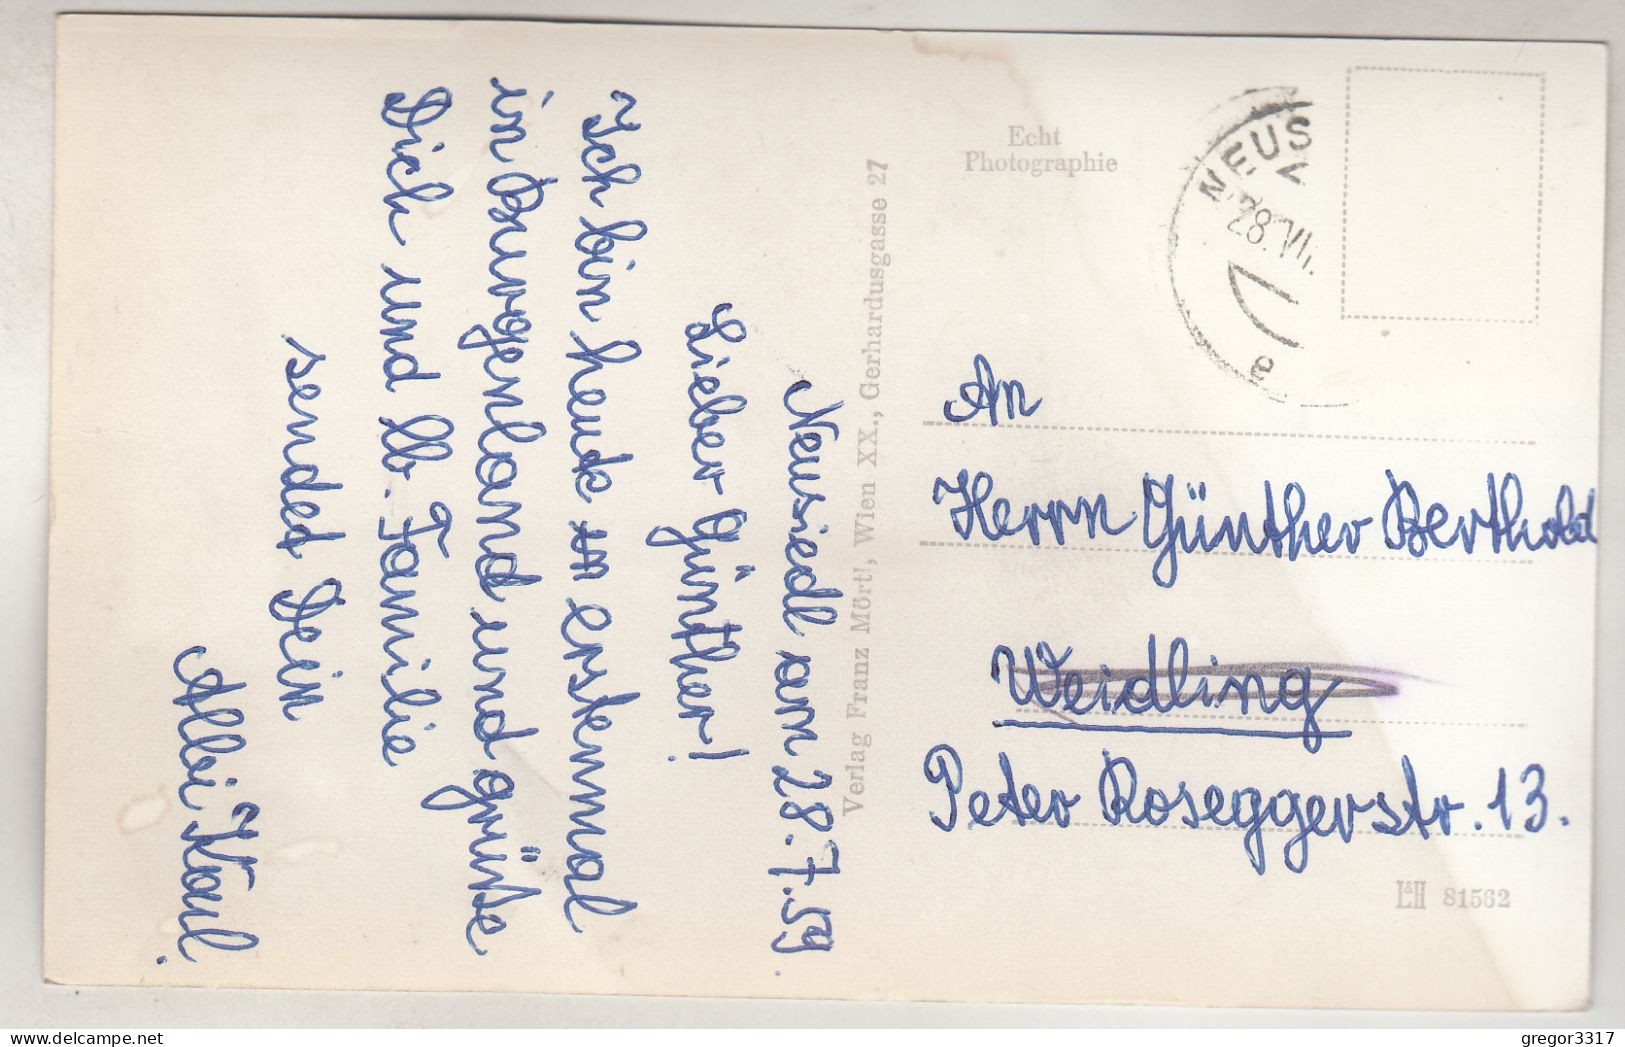 Neusiedl am 28.7.59
Lieber Günther!
Ich bin heute erstenmal
in Burgenland und grüße
Dich und lb. Familie
sendet Dein
Karl.
Verlag Franz Mörtl, Wien XX., Gerhardusgasse 27
Echt
Photographie
NEUS
28. VII.
a
An
Herrn Günther Berthold
Weidling
Peter Roseggerstr. 13.
L&H 81562
gregor3317